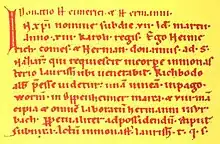 Donatio H eimerici et H ermanni.
In xpi nomine sub die XII id. martii
anno XVII karoli regis. Ego Hein
rich comes et Herman donamus ad S.
Nazariū qui requiescit in corpore in monas
terio laurissā ubi uenerabil. Richbodo
abb. p̄esse uidetur unā uineā in pago
worm̄. in Oppenheimer marca et VIII man
cipia et omne laboratū herimanni
bach. ppetualiter ad possidendū. stipul.
subnixa. actū in monast. laurish. T. q. s.